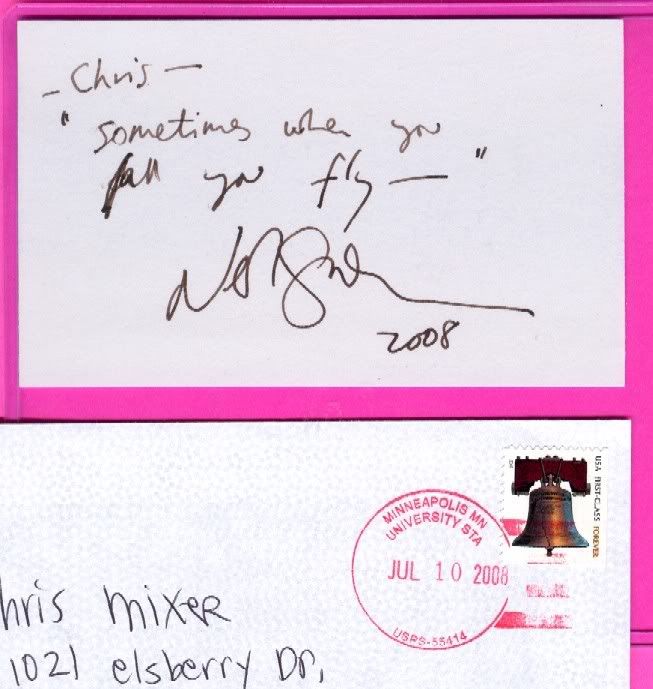 - Chris -
" sometimes when you
fall you fly — "
2008
USA FIRST-CLASS FOREVER
MINNEAPOLIS MN
UNIVERSITY STA
JUL 10 2008
USPS-55414
hris mixeR
1021 elsberry Dr,